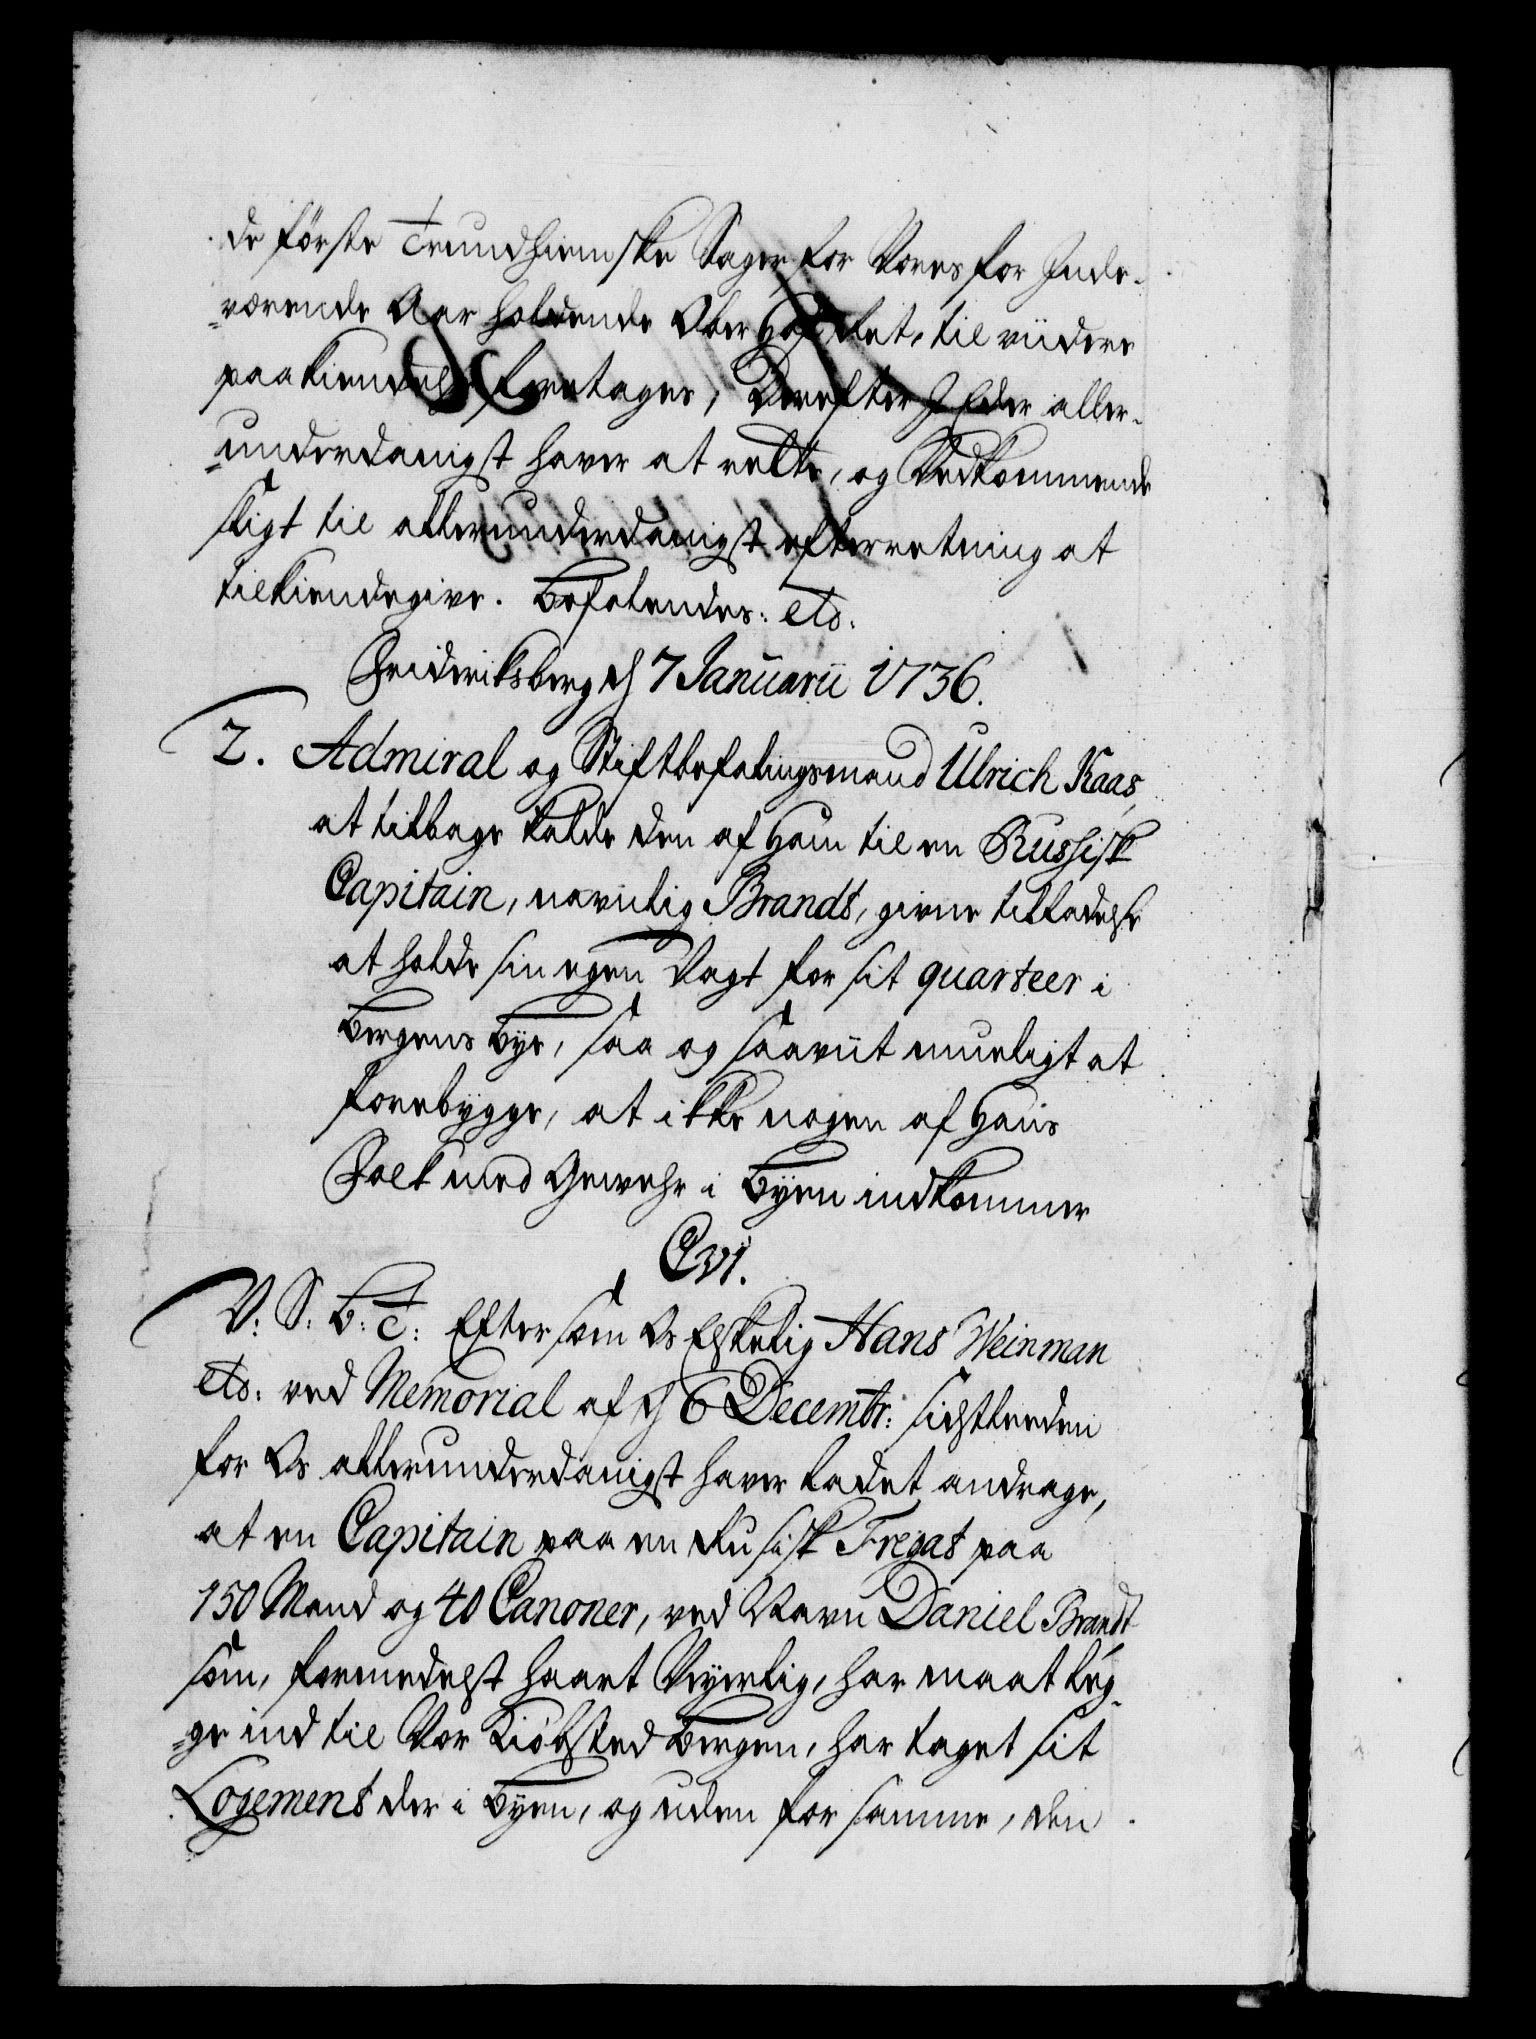 de förste Trundhiemske Sager for Vores for Inde-
værende Aar holdende Ober Hof Ret, til viidere
paakiendelse foretages, Derefter I Eder aller-
underdanigst haver at rette, og Vedkommende
sligt til allerunderdanigst efterretning at
tilkiendegive. Befalendes: etc.
Frideriksberg d 7 Januarii 1736.
2. Admiral og Stiftbefalingsmand Ulrich Kaas,
at tilbage kalde den af Ham til en Russisk
Capitain, navnlig Brandt, givne tilladelse
at holde sin egen Vagt for sit quarteer i
Bergens Bye, saa og saaviit mueligt at
forebygge, at ikke nogen af Hans
Folk med Gewehr i Byen indkommer
C VI.
V: S: B: T: Eftersom Os Elskelig Hans Weinman
etc: ved Memorial af d 6 Decembr: sidstleeden
for Os allerunderdanigst haver ladet andrage,
at en Capitain paa en Rusisk Fregat paa
150 Mand og 40 Canoner, ved Navn Daniel Brandt
som, formedelst haart Veyerlig, har maat leg-
ge ind til Vor Kiøbsted Bergen, har taget sit
Logement der i Byen, og uden for samme, den